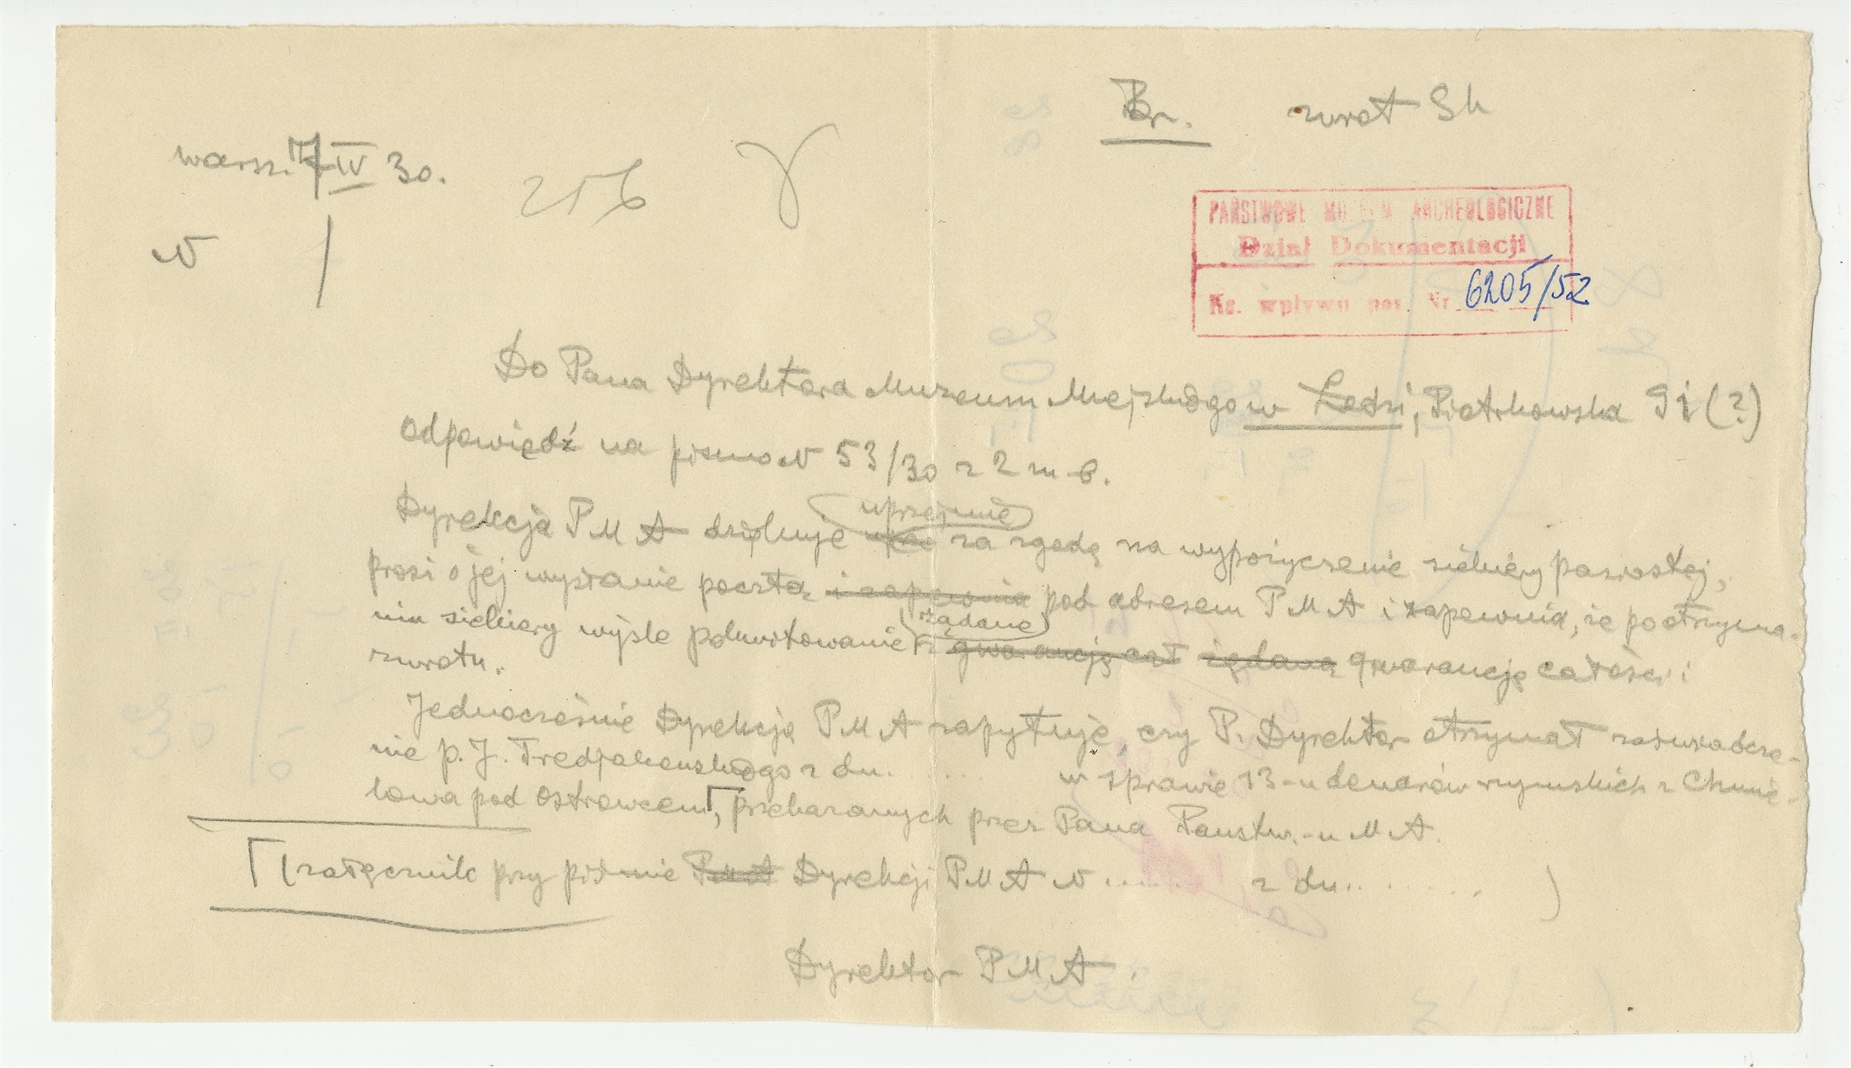 Br. zwrot Sh
Warsz. 7 IV 30.
256
N /
PAŃSTWOWE MUZEUM ARCHEOLOGICZNE
Dział Dokumentacji
Ks. wpływu poz. Nr 6205/52
Do Pana Dyrektora Muzeum Miejskiego w Łodzi, Piotrkowska 91 (?)
Odpowiedź na pismo N 53/30 z 2 m b.
Dyrekcja PMA dziękuje uprzejmie za zgodę na wypożyczenie siekiery pasiastej,
prosi o jej wysłanie pocztą i zapewnia pod adresem PMA i zapewnia, że po otrzyma-
niu siekiery wyśle pokwitowanie i żądane gwarancję cał żądaną gwarancję całości i
zwrotu.
Jednocześnie Dyrekcja PMA zapytuje, czy P. Dyrektor otrzymał zaświadcze-
nie p. J. Tredjakowskiego z dn. ...... w sprawie 13-u denarów rzymskich z Chmie-
lowa pod Ostrowcem, przekazanych przez Pana Państw.-u M A.
(załącznik przy piśmie PMA Dyrekcji PMA N ...... z dn. ........)
Dyrektor PMA.